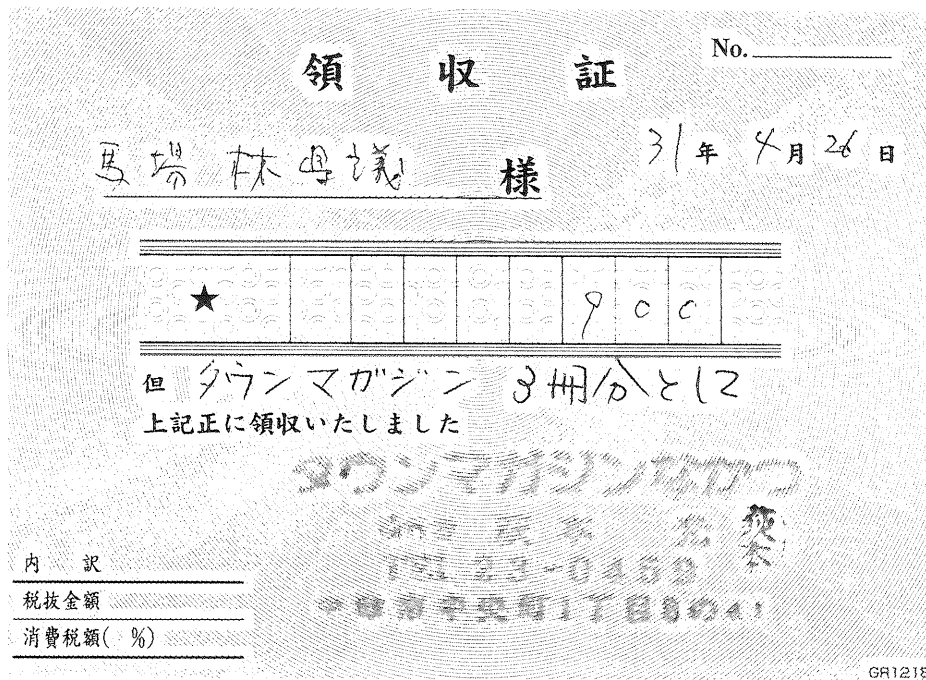 No.
領収証
馬場林県議 様
31年4月26日
★ 900
但 タウンマガジン 3冊分として
上記正に領収いたしました
タウンマガジンなかつ
TEL 23-0459
中央町1丁目8の41
内訳
税抜金額
消費税額( %)
GR1218